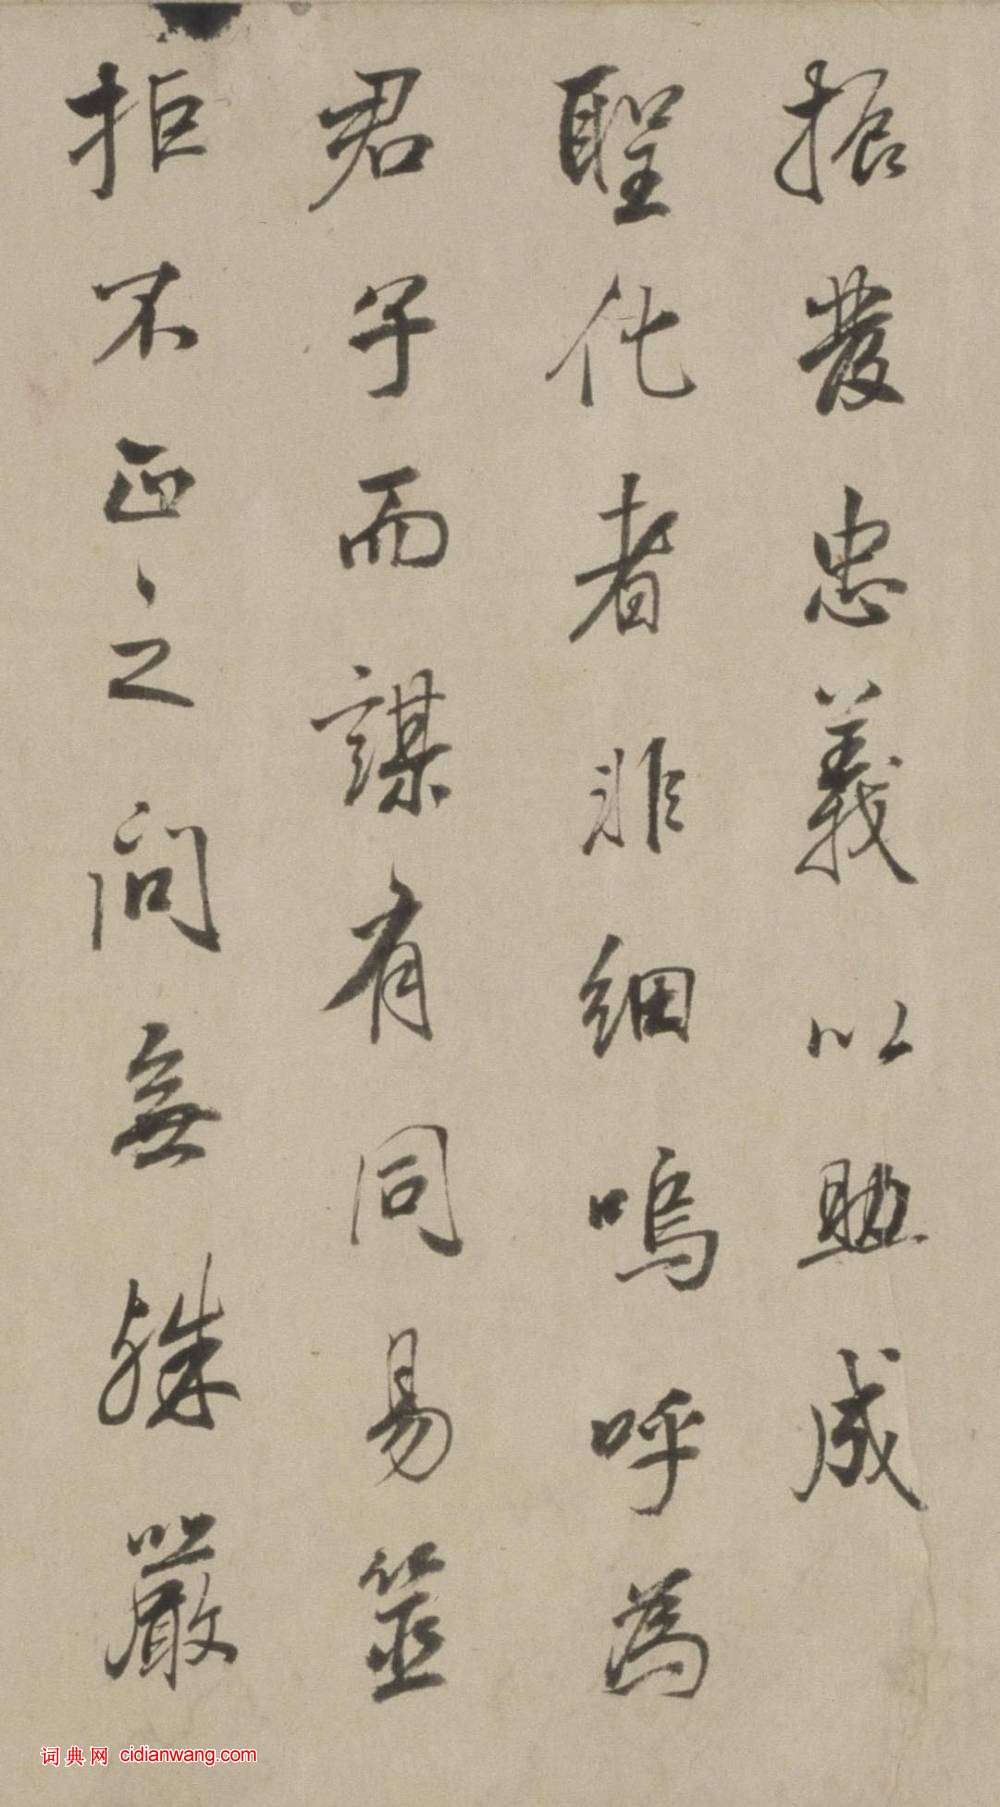 振發忠義以助成
聖化者非細嗚呼為
君子而謀有同易筮
拒不正之間無殊嚴
词典网 cidianwang.com